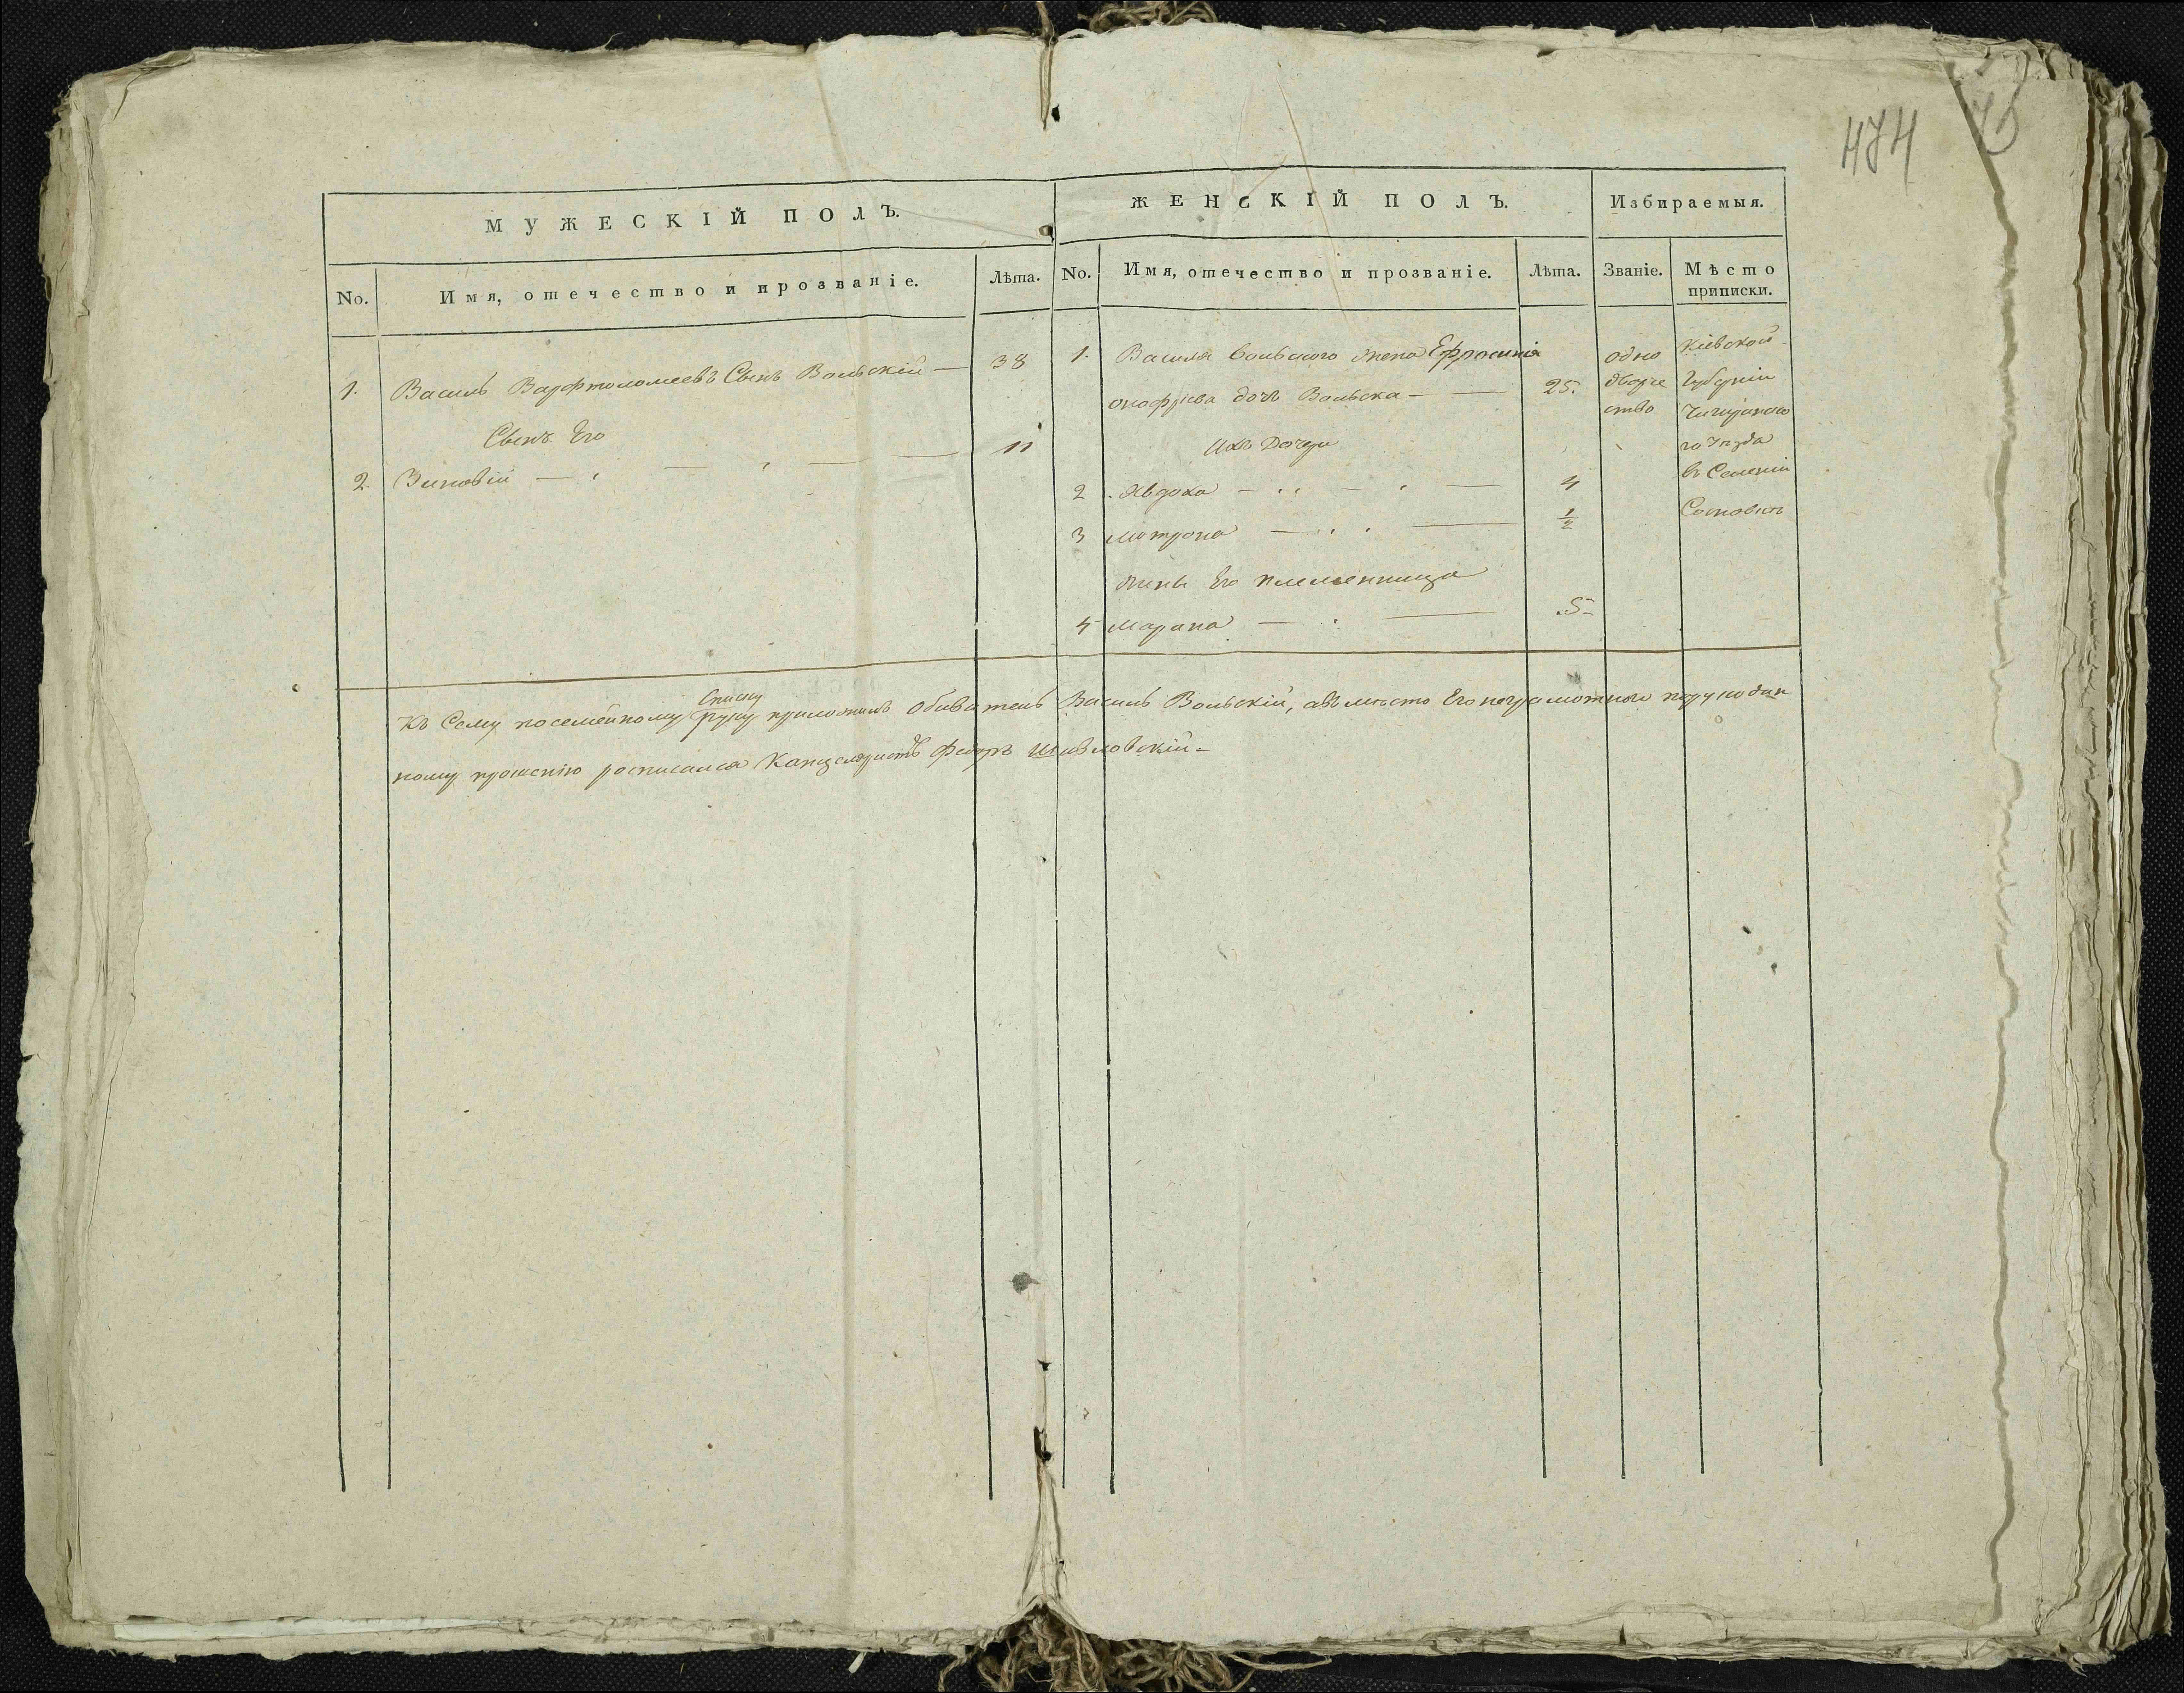 474
МУЖЕСКІЙ ПОЛЪ.
No.
Имя, отечество и прозваніе.
Лѣта.
1. Василь Варфтоломеевъ Сынъ Вольскій — 38
Сынъ Его
2. Зиновій — 11
ЖЕНСКІЙ ПОЛЪ.
No.
Имя, отечество и прозваніе.
Лѣта.
1. Василя Вольского жена Ефросинія
онофріева дочь Вольска — 25.
Ихъ Дочери
2. Явдоха — 4
3 Мотрона — 1/2
жены Его племенница
4 Марина — 5
Избираемыя.
Званіе.
Мѣсто
приписки.
одно
дворче
ство
Кіевской
Губерніи
Чигринско
го Уѣзда
въ Селеніи
Сосновки
Списку
Къ Сему посемейному руку приложилъ Обыватель Василь Вольскій, авъмѣсто Его неграмотного поруко дан
ному прошенію росписался Канцеляристъ Федоръ